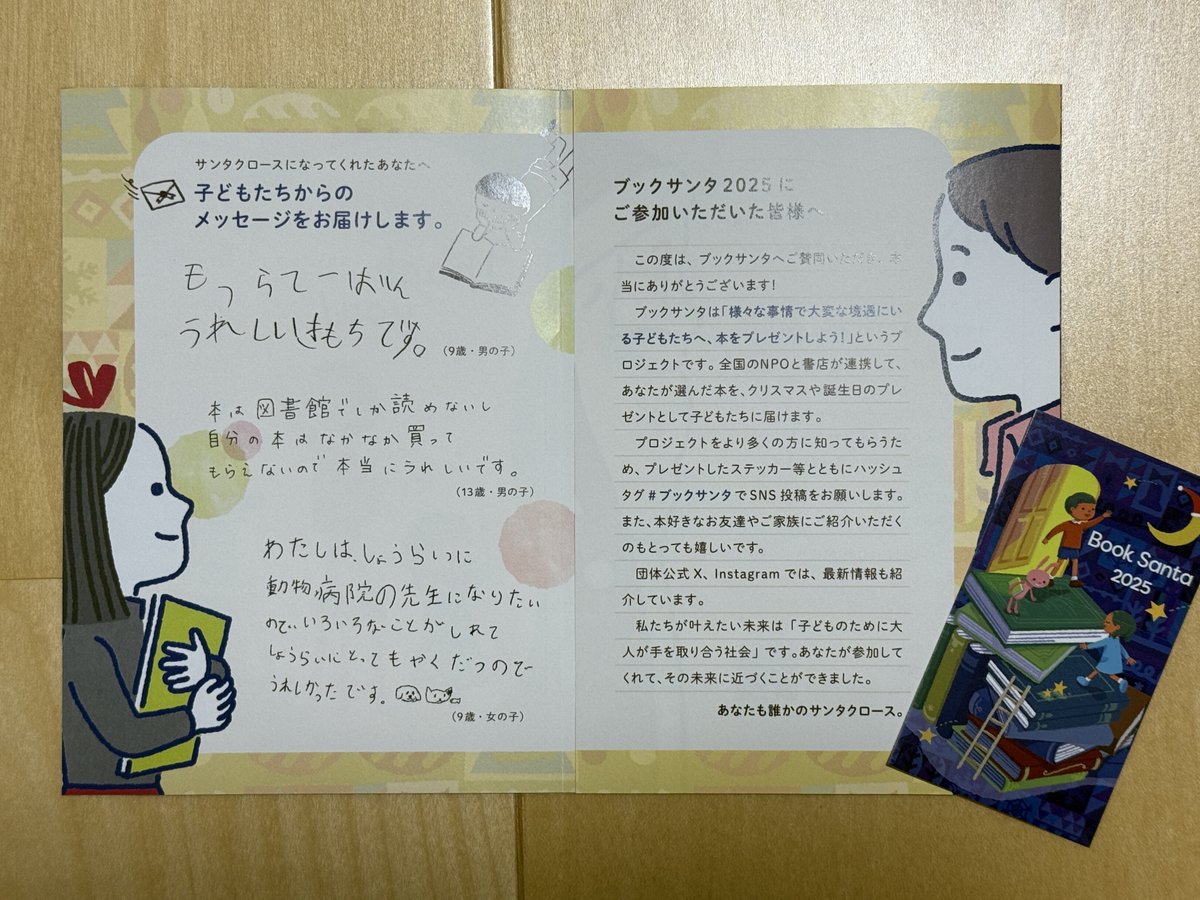 サンタクロースになってくれたあなたへ
子どもたちからの
メッセージをお届けします。
もうらて一ばん
うれしいきもちです。
(9歳・男の子)
本は図書館でしか読めないし
自分の本はなかなか買って
もらえないので本当にうれしいです。
(13歳・男の子)
わたしは、しょうらいに
動物病院の先生になりたい
ので、いろいろなことがしれて
しょうらいにとってもやくだつので
うれしかったです。
(9歳・女の子)
ブックサンタ2025に
ご参加いただいた皆様へ
この度は、ブックサンタへご賛同いただき、本
当にありがとうございます!
ブックサンタは「様々な事情で大変な境遇にい
る子どもたちへ、本をプレゼントしよう!」というプ
ロジェクトです。全国のNPOと書店が連携して、
あなたが選んだ本を、クリスマスや誕生日のプレ
ゼントとして子どもたちに届けます。
プロジェクトをより多くの方に知ってもらうた
め、プレゼントしたステッカー等とともにハッシュ
タグ#ブックサンタでSNS投稿をお願いします。
また、本好きなお友達やご家族にご紹介いただく
のもとっても嬉しいです。
団体公式X、Instagramでは、最新情報も紹
介しています。
私たちが叶えたい未来は「子どものために大
人が手を取り合う社会」です。あなたが参加して
くれて、その未来に近づくことができました。
あなたも誰かのサンタクロース。
Book Santa
2025